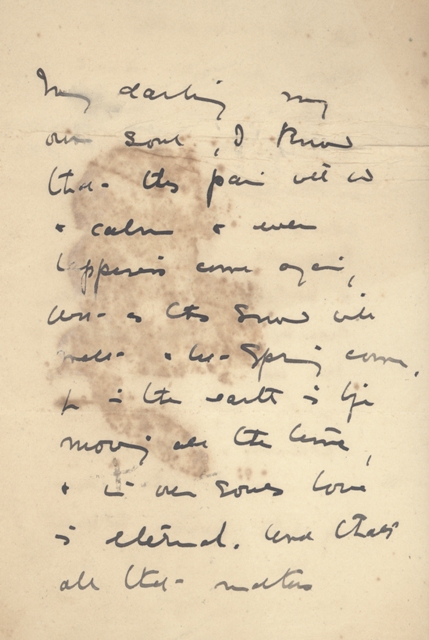 My darling my
own soul, I know
that this pain will
& calm & even
happiness come again,
as this snow will
melt & let Spring come,
in the earth is life
moving all the time,
& in our souls love
is eternal. And that's
all that matters